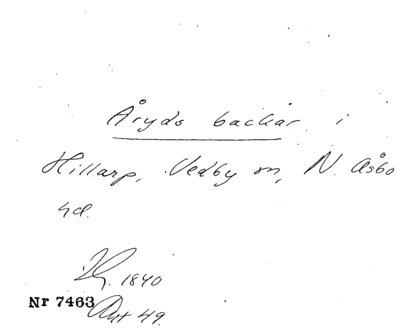 Åryds backar i
Hillarp, Vedby sn, N. Åsbo
hd.
1840
Nr 7463
Avt 49.